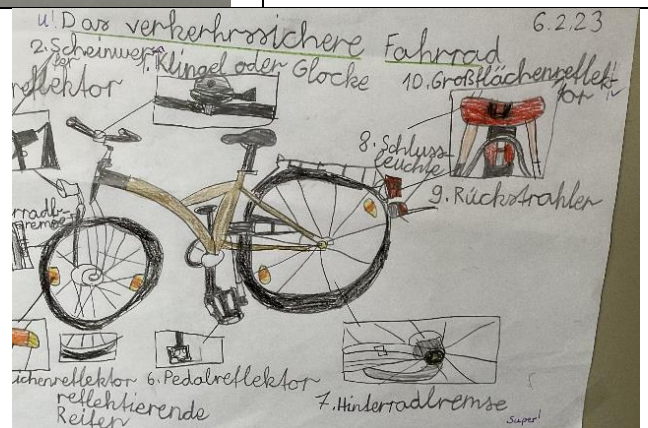 u! Das verkehrssichere Fahrrad
6.2.23
2. Scheinwerfer
1. Klingel oder Glocke
10. Großflächenreflektor
reflektor
8. Schlussleuchte
9. Rückstrahler
rradbremse
ichenreflektor
6. Pedalreflektor
reflektierende
Reifen
7. Hinterradbremse
Super!